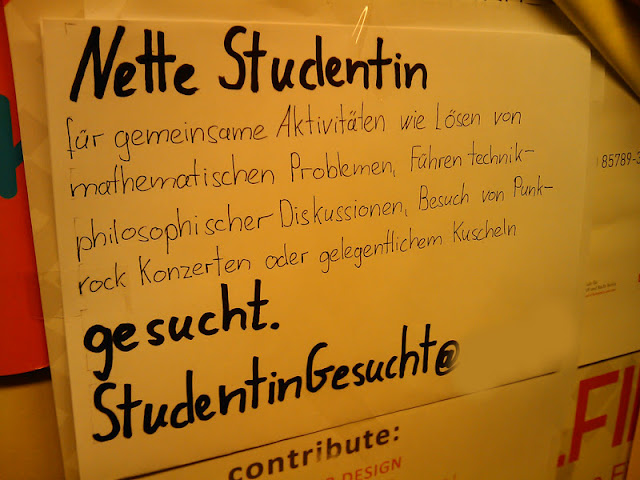 Nette Studentin
für gemeinsame Aktivitäten wie Lösen von
mathematischen Problemen, Führen technik-
philosophischer Diskussionen, Besuch von Punk-
rock Konzerten oder gelegentlichem Kuscheln
gesucht.
StudentinGesucht@
85789-3
contribute:
DESIGN
.FI